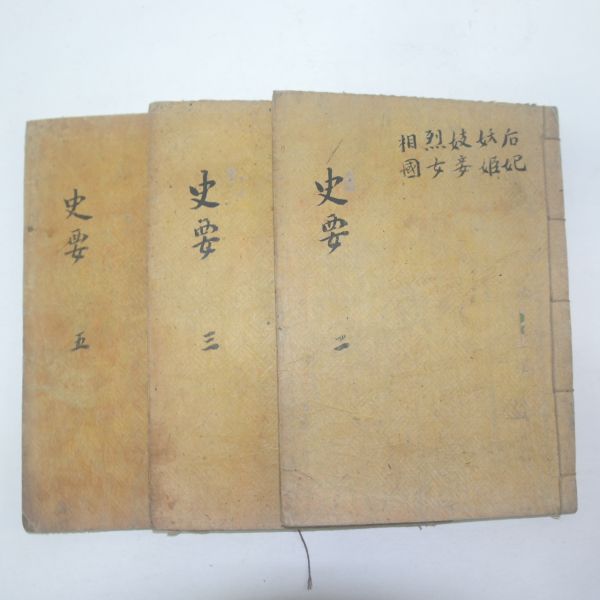 后妃
妖姬
妓妾
烈女
相國
史要
二
史要
三
史要
五